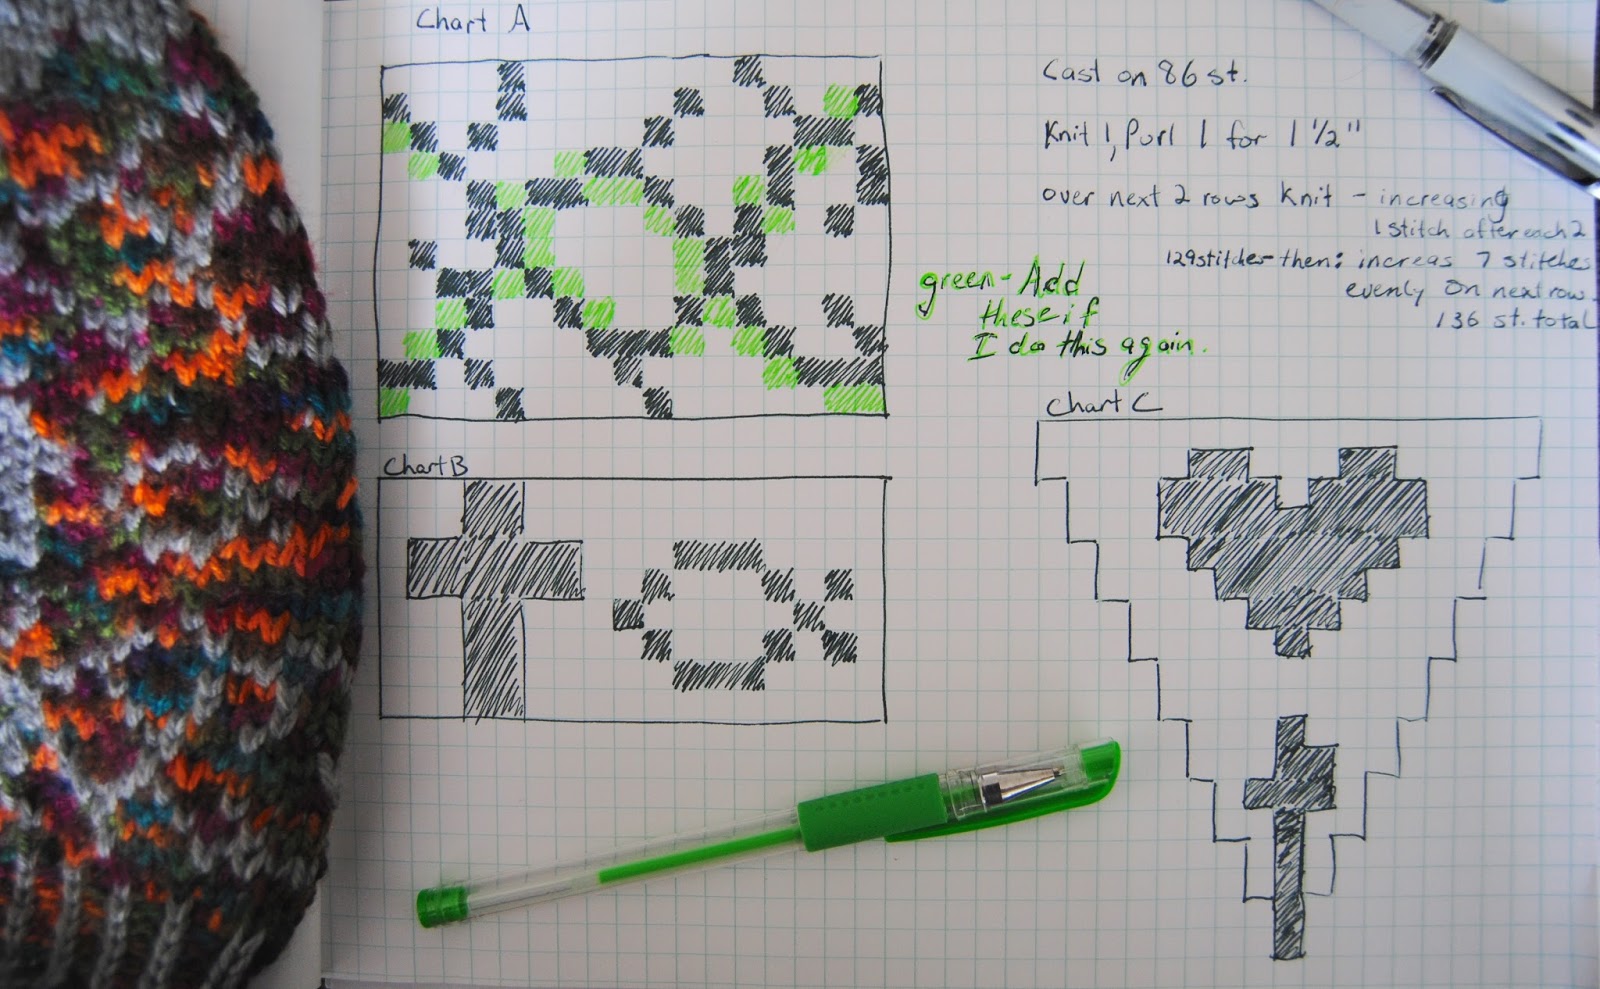 Chart A
Cast on 86 st.
Knit 1, Purl 1 for 1 1/2"
over next 2 rows Knit - increasing
1 stitch after each 2
129 stitches - then: increas 7 stitches
evenly on next row.
136 st. total
green - Add
these if
I do this again.
Chart B
Chart C